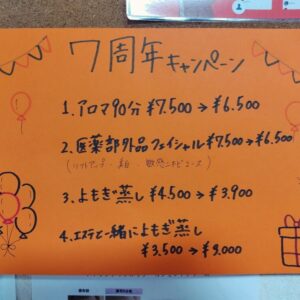 7周年キャンペーン
1. アロマ90分 ¥7.500→¥6.500
2. 医薬部外品フェイシャル ¥7.500→¥6.500
(リフトアップ・美白・敏感ニキビコース)
3. よもぎ蒸し ¥4.500→¥3.900
4. エステと一緒によもぎ蒸し
¥3,500→¥3.000